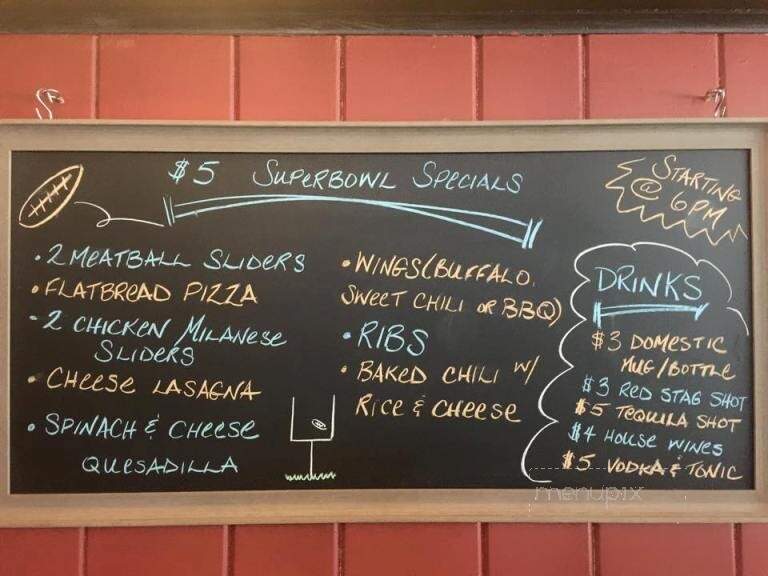 $5 SUPERBOWL SPECIALS
STARTING
@ 6PM
• 2 MEATBALL SLIDERS
• FLATBREAD PIZZA
• 2 CHICKEN MILANESE
SLIDERS
• CHEESE LASAGNA
• SPINACH & CHEESE
QUESADILLA
• WINGS (BUFFALO,
SWEET CHILI OR BBQ)
• RIBS
• BAKED CHILI W/
RICE & CHEESE
DRINKS
$3 DOMESTIC
MUG/BOTTLE
$3 RED STAG SHOT
$5 TEQUILA SHOT
$4 HOUSE WINES
$5 VODKA & TONIC
menupix